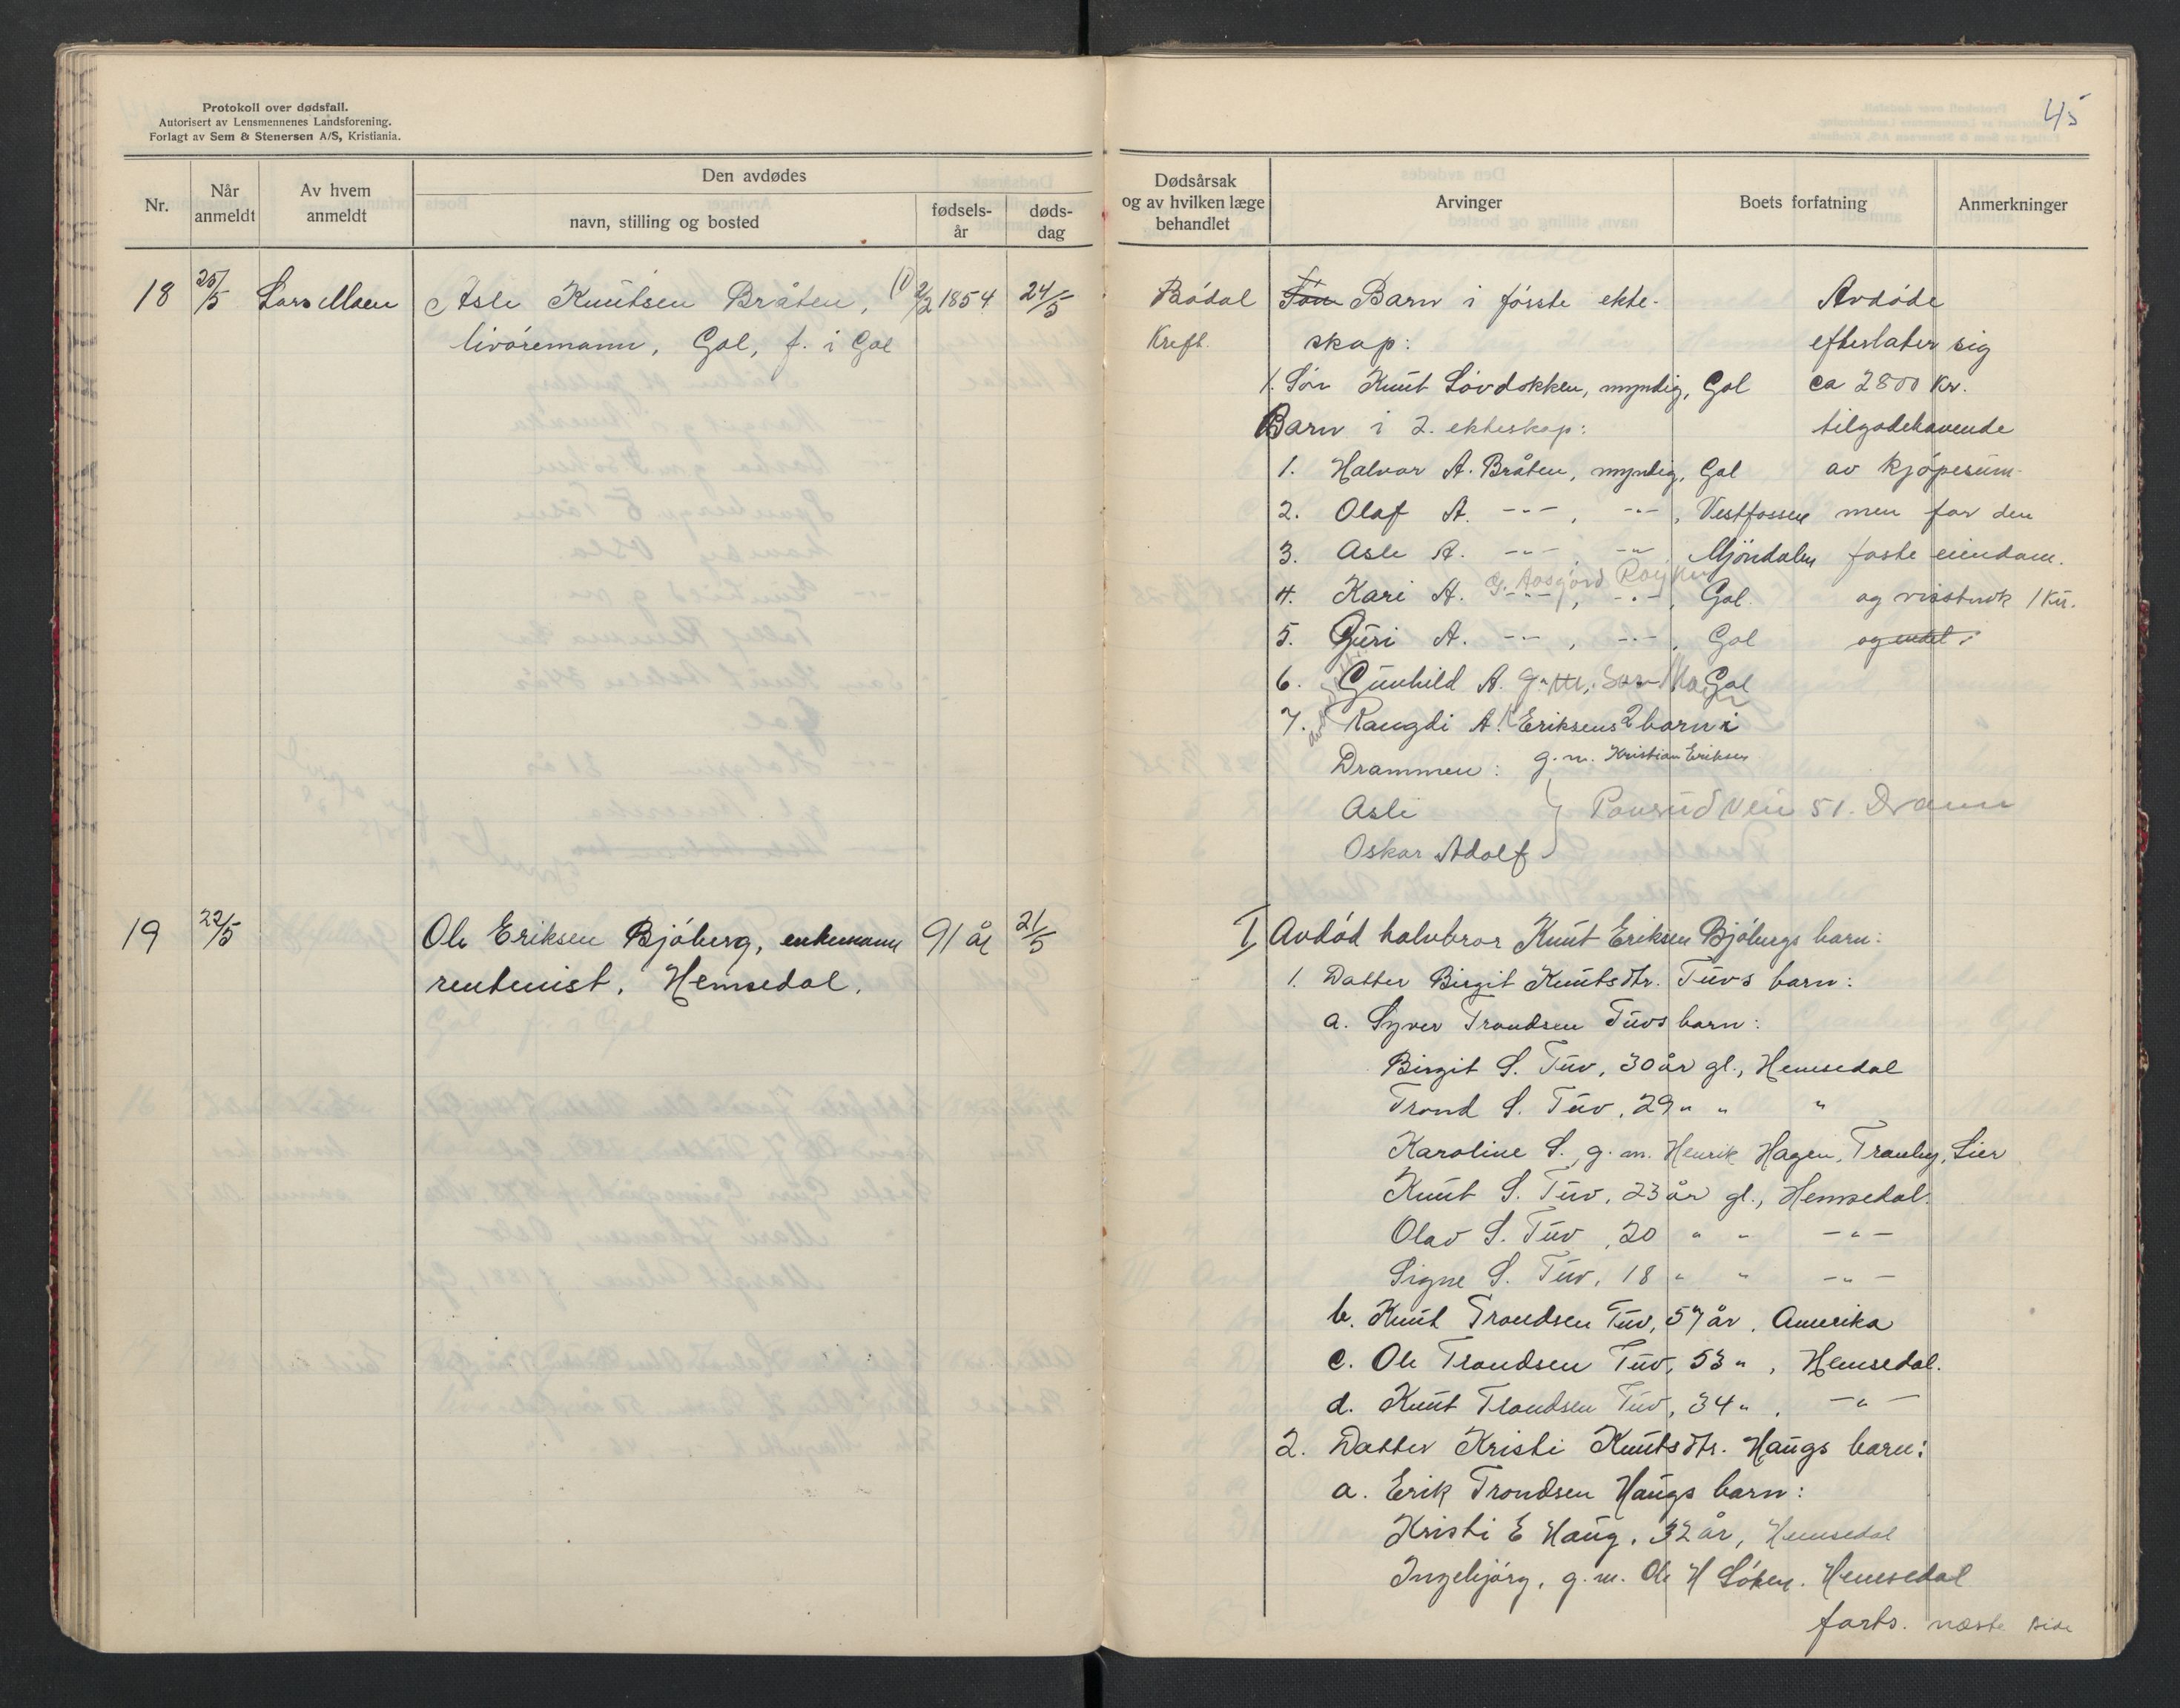 Protokoll over dødsfall.
Autorisert av Lensmennenes Landsforening.
Forlagt av Sem & Stenersen A/S, Kristiania.
Nr.
Når anmeldt
Av hvem anmeldt
Den avdødes
navn, stilling og bosted
fødsels-år
døds-dag
18 25/5 Lars Moen Asle Knutsen Bråten, 2/2 1854 24/5
livøremann, Gol, f. i Gol
19 22/5 Ole Eriksen Bjøberg, enkemann 91 år 21/5
rentenist, Hemsedal.
45
Dødsårsak
og av hvilken læge
behandlet
Arvinger
Boets forfatning
Anmerkninger
Bødal
Kreft.
Søn Barn i første ekte-
skap:
1. Søn Knut Løvdokken, myndig, Gol
Barn i 2. ekteskap:
1. Halvor A. Bråten, myndig, Gol
2. Olaf A. -"- , -"- , Vestfossen
3. Asle A. -"- , -"- Mjøndalen
4. Kari A. -"- , -"- , Gol.
5. Guri A. -"- , -"- , Gol
6. Gunhild A. g.m. Lars Moen Gol
7. Rangdi A. Eriksens 2 barn i
Drammen: g.m. Kristian Eriksen
Asle
Oskar Adolf
51. Dramn
Avdøde
efterlater sig
ca 2800 Kr.
tilgodehavende
av kjøpesum-
men for den
faste eiendom.
og 1 Ku.
og endel
I Avdød halvbror Knut Eriksen Bjøbergs barn:
1. Datter Birgit Knutsdtr. Tuvs barn:
a. Syver Trondsen Tuvs barn:
Birgit S. Tuv, 30 år gl., Hemsedal
Trond S. Tuv, 29 " " "
Karoline S., g.m. Henrik Hagen, Tranby, Lier
Knut S. Tuv, 23 år gl., Hemsedal.
Olav S. Tuv, 20 " " -"-
Signe S. Tuv, 18 " " -"-
b. Knut Trondsen Tuv, 57 år, Amerika
c. Ole Trondsen Tuv, 53 ", Hemsedal.
d. Knut Trondsen Tuv, 34 ", -"-
2. Datter Kristi Knutsdtr. Haugs barn:
a. Erik Trondsen Haugs barn:
Kristi E Haug, 32 år, Hemsedal
Ingebjørg, g.m. Ole H Løken. Hemsedal
forts. næste side